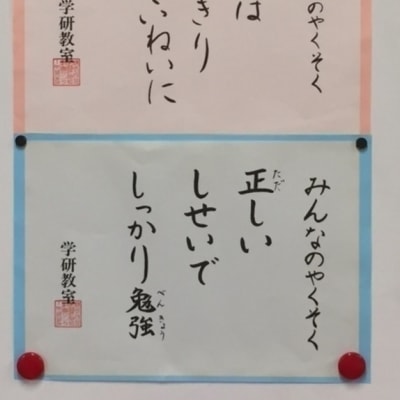 のやくそく
は
きり
いねいに
学研教室
みんなのやくそく
正しい
ただ
しせいで
しっかり勉強
べんきょう
学研教室